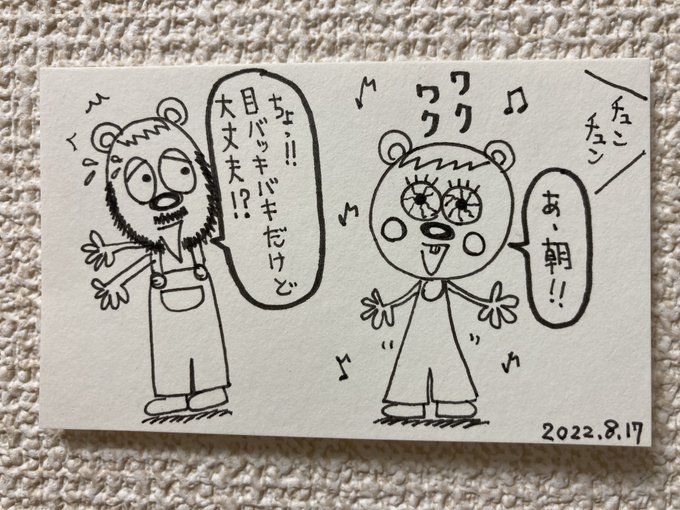 チュン
チュン
ワク
ワク
あ、朝!!
ちょっ!!
目バッキバキだけど
大丈夫!?
2022.8.17